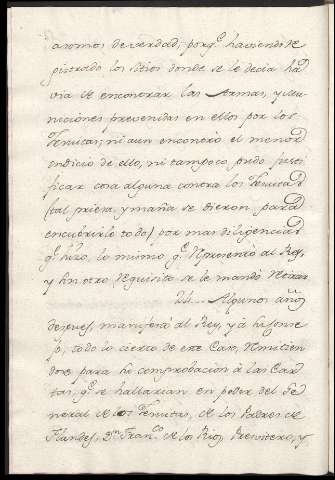 asomos de verdad, porq.e haviendo Re
gistrado los sitios donde se le decia ha
via de encontrar las Armas, y Mu
niciones prevenidas en ellos por los
Jesuitas, ni aun encontró el menor
indicio de ello, ni tampoco pudo justi
ficar cosa alguna contra los Jesuitas
(tal priesa, y maña se dieron para
encubrirlo todo) por mas diligencias
q.e hizo, lo mismo q.e Representó al Rey,
y sin otro Requisito se le mandó Retirar.
24... Algunos años
despues manifestó al Rey, y á su Conse
jo, todo lo cierto de este Caso, Remitien
dose para su comprobacion á las Car
tas, q.e se hallarian en poder del Ge
neral de los Jesuitas, de los Padres de
Flandes, D.n Fran.co de los Rios, Presvitero, y